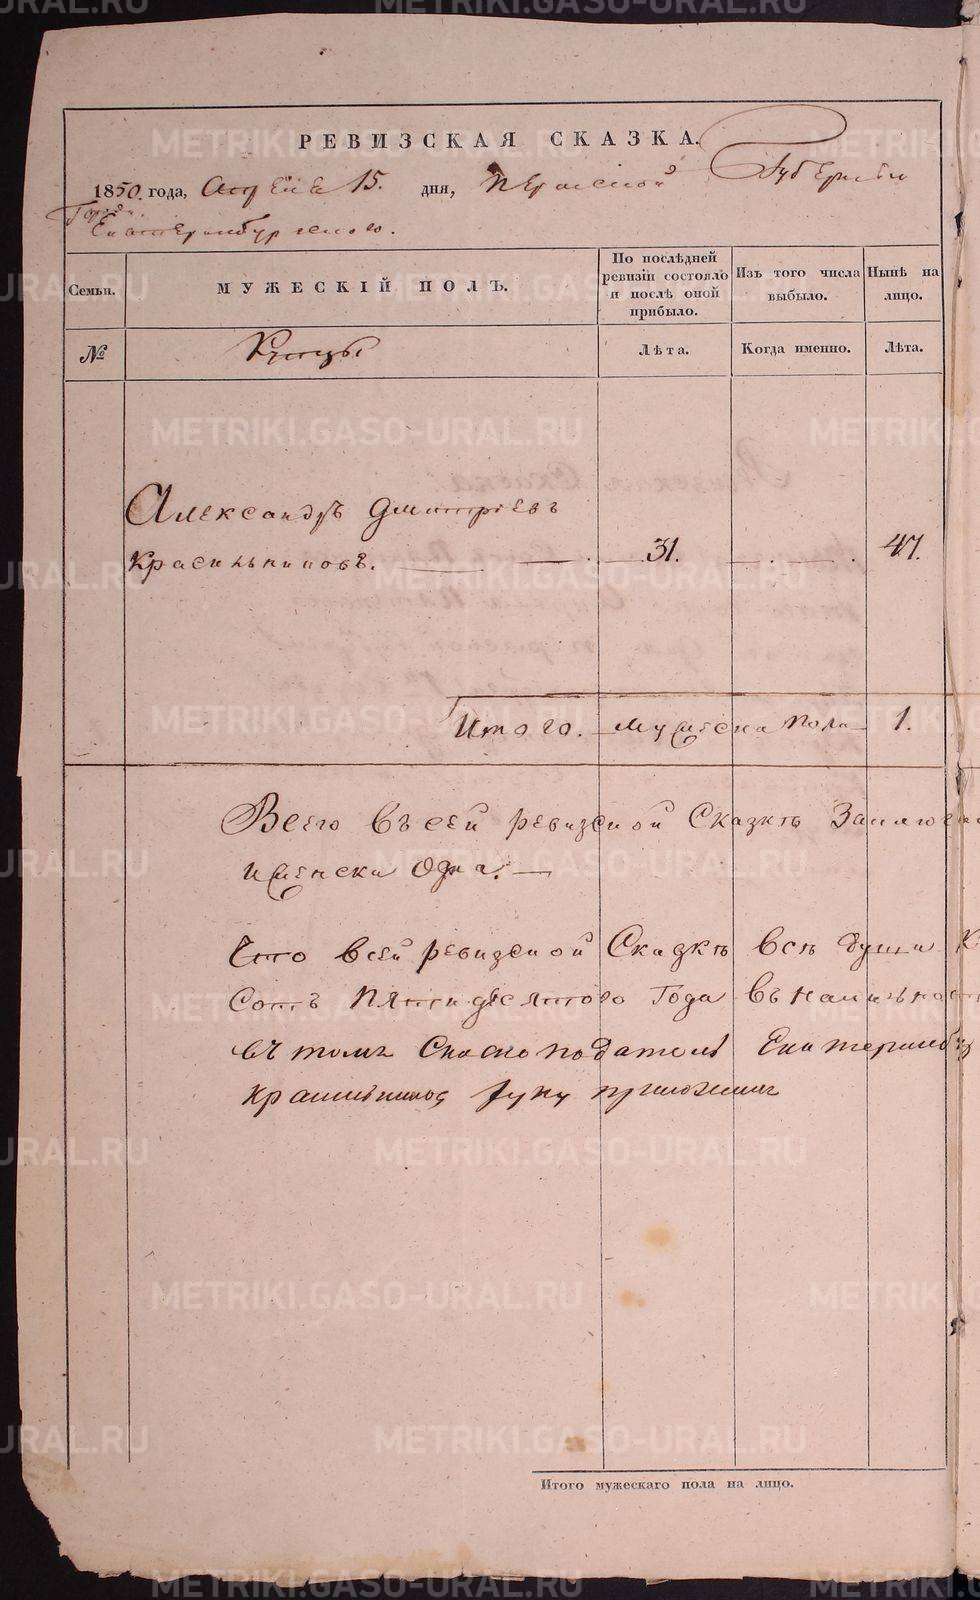 РЕВИЗСКАЯ СКАЗКА.
1850 года, Апреля 15. дня, Пермской Губернии
Города
Екатеринбургского.
Семьи.
МУЖЕСКІЙ ПОЛЪ.
По послѣдней ревизіи состояло и послѣ оной прибыло.
Изъ того числа выбыло.
Нынѣ на лицо.
№
Купцы
Лѣта.
Когда именно.
Лѣта.
Александръ Дмитріевъ
Красильниковъ. 31. 47.
Итого. Мужеска пола 1.
Всего въ сей ревизской Сказкѣ Заключ
женска одна.
Что всей ревизской Сказкѣ всѣ души К
Сотъ Пятидесятого Года въ налично
въ томъ Сказкоподатель Екатеринбу
Красильников руку приложилъ
Итого мужескаго пола на лицо.
METRIKI.GASO-URAL.RU